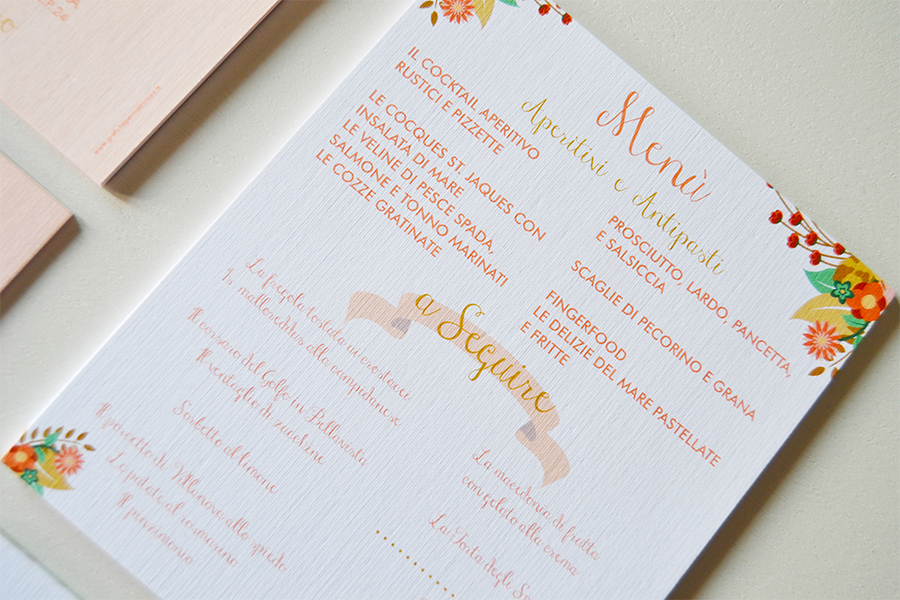 Menù
Aperitivi e Antipasti
IL COCKTAIL APERITIVO
RUSTICI E PIZZETTE
LE COCQUES ST. JAQUES CON
INSALATA DI MARE
LE VELINE DI PESCE SPADA,
SALMONE E TONNO MARINATI
LE COZZE GRATINATE
PROSCIUTTO, LARDO, PANCETTA,
E SALSICCIA
SCAGLIE DI PECORINO E GRANA
FINGERFOOD
LE DELIZIE DEL MARE PASTELLATE
E FRITTE
a Seguire
La fregola tostata ai crostacei
Is malloreddus alla campidanese
Il corvaro del Golfo in Bellavista
Il ventaglio di zucchine
Sorbetto al limone
Il porcetto di Villanova allo spiedo
Le patate al rosmarino
Il pinzimonio
La macedonia di frutta
con gelato alla crema
La Torta degli